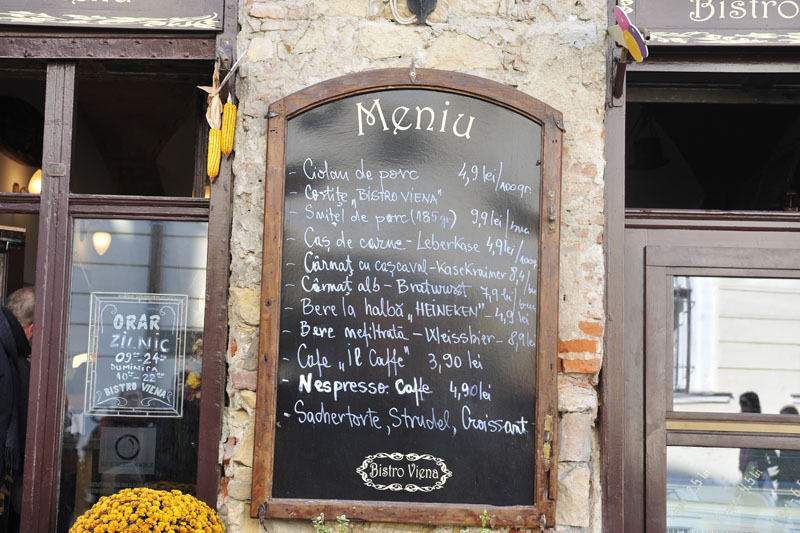 Bistro
Meniu
- Ciolan de porc 4,9 lei/100gr.
- Costițe „BISTRO VIENA"
- Șnițel de porc (185gr) 9,9 lei/buc
- Caș de carne - Leberkäse 4,9 lei/100gr.
- Cârnaț cu cașcaval - Kasekrainer 8,4/buc
- Cârnaț alb - Bratwurst 7,9 lei/buc
- Bere la halbă „HEINEKEN" - 4,9 lei
- Bere nefiltrată - Weissbier - 8,9 lei
- Cafe „Il Caffe" 3,90 lei
- Nespresso. Caffe 4,90 lei
- Sachertorte, Strudel, Croissant
Bistro Viena
ORAR
ZILNIC
09-24
DUMINICA
10-22
BISTRO VIENA